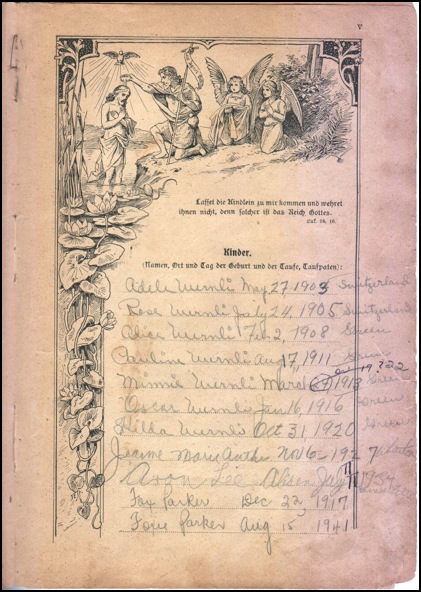 v
Lasset die Kindlein zu mir kommen und wehret
ihnen nicht, denn solcher ist das Reich Gottes.
Luk. 18, 16.
Kinder.
(Namen, Ort und Tag der Geburt und der Taufe, Taufpaten):
Adele Wernli May 27, 1903 Switzerland
Rose Wernli July 24, 1905 Switzerland
Alice Wernli Feb 2, 1908 Green
Pauline Wernli Aug 17, 1911 Green
Minnie Wernli March 1913 Green
Oscar Wernli Jan 16, 1916 Green
Hilda Wernli Oct 31, 1920
Jeanne Marie Nov 6 192
Aron Lee
Fox Parker Dec 22, 1917
Foxie Parker Aug 15 1941